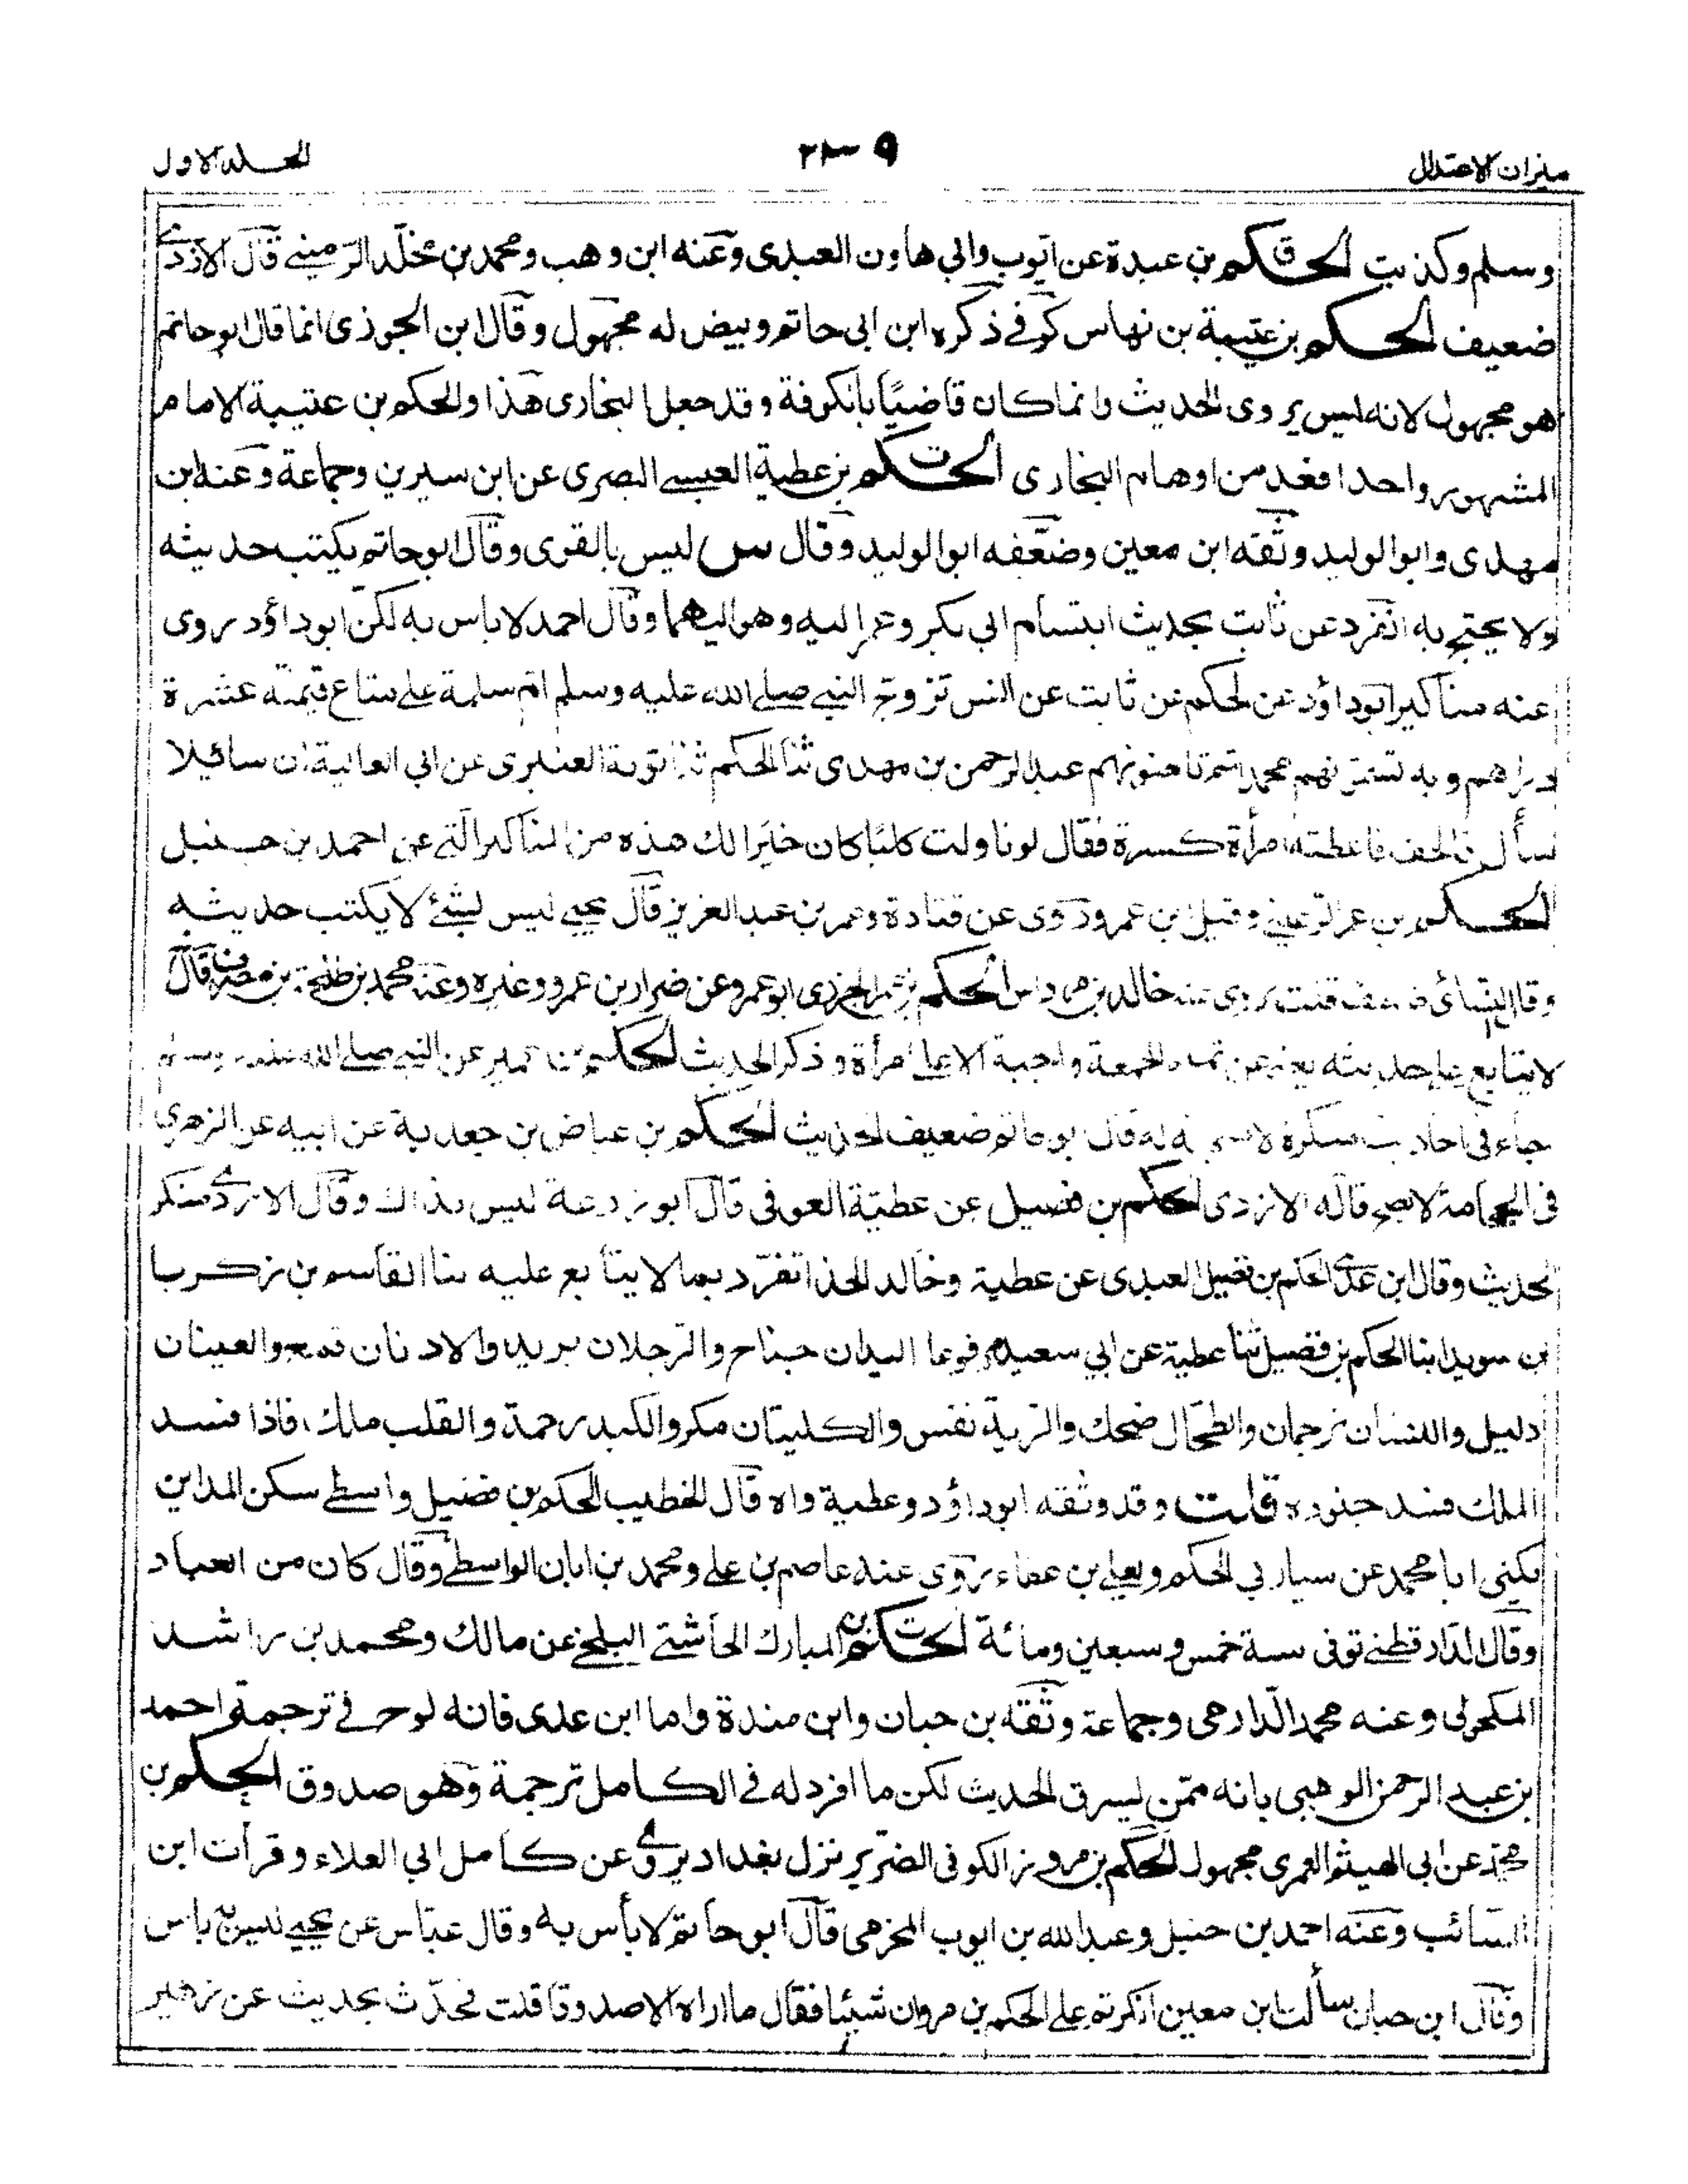 ميزان الاعتدال
الجلد الاول
وسلم وكذبت الحكم بن عبدة عن ايوب وابي هاون العبدى وعنه ابن وهب ومحمد بن مخلّد الرعينے قال الازدے
ضعيف الحكم بن عتيبة بن نهاس كوفے ذكره ابن ابى حاتم وبيض له مجهول وقال ابن الجوزى انما قال ابو حاتم
هو مجهول لانه ليس يروى الحديث وانما كان قاضيًا بالكوفة وقد جعل البخارى هذا والحكم بن عتيبة الامام
المشهور واحدا فعد من اوهام البخارى الحكم بن عطية العيسے البصرى عن ابن سيرين وجماعة وعنه ابن
مهدى وابو الوليد وثقه ابن معين وضعّفه ابو الوليد وقال س ليس بالقوى وقال ابو حاتم يكتب حديثه
ولا يحتج به انفرد عن ثابت بحديث ابتسام ابى بكر وعمر اليه وهو اليهما وقال احمد لا باس به لكن ابو داؤد روى
عنه مناكير ابو داؤد عن الحكم عن ثابت عن انس تزوج النبے صلے الله عليه وسلم ام سلمة علے متاع قيمته عشرة
دراهم وبه عبد الرحمن بن مهدى ثنا الحكم ثنا توبة العنبرى عن ابى العالية ان سائلا
سأل فاعطته امرأة كسرة فقال لو ناولت كلبًا كان خيرا لك هذه من المناكير الّتے عن احمد بن حنبل
الحكم بن عمر الرعينے وقيل بن عمرو روى عن قتادة وعمر بن عبد العزيز قال يحيے ليس بشئ لا يكتب حديثه
وقال النسائى ضعيف قلت روى عنه خالد بن مرداس الحكم بن عمرو الجزرى ابو عمرو عن ضرار بن عمرو وغيره وعنه محمد بن طلحة بن مصرف قال
لا يتابع علے حديثه يعنے عن الجمعة واجبة الا علے امرأة وذكر الحديث الحكم بن عمير عن النبے صلے الله عليه وسلم
جاء فى احاديث منكرة لا صحبة له قال ابو حاتم ضعيف الحديث الحكم بن عياض بن جعدبة عن ابيه عن الزهرى
فى الحجامة لا يصح قاله الازدى الحكم بن فضيل عن عطيّة العوفى قال ابو زرعة ليس بذاك وقال الازدے منكر
الحديث وقال ابن عدے الحكم بن فضيل العبدى عن عطية وخالد الحذا تفرّد بما لا يتابع عليه ثنا القاسم بن زكريا
بن سويد ابنا الحكم بن فضيل ثنا عطية عن ابي سعيد مرفوعا اليدان جناح والرجلان بريد والاذنان قمع والعينان
دليل واللسان ترجمان والطحال ضحك والرية نفس والكليتان مكر والكبد رحمة والقلب ملك فاذا فسد
الملك فسد جنوده قلت وقد وثقه ابو داؤد وعطية واه قال الخطيب الحكم بن فضيل واسطے سكن المداين
يكنى ابا محمد عن سيار بي الحكم ويعلے بن عطاء روى عنه عاصم بن علے ومحمد بن ابان الواسطے وقال كان من العباد
وقال الدارقطنے توفى سنة خمس وسبعين ومائة الحكم بن المبارك الخاشتے البلخے عن مالك ومحمد بن راشد
المكحولى وعنه محمد الدارمى وجماعة وثقه بن حبان وابن مندة واما ابن عدى فانه لوح فے ترجمة احمد
بن عبد الرحمن الوهبى بانه ممّن يسرق الحديث لكن ما افرد له فے الكامل ترجمة وهو صدوق الحكم بن
محمد عن ابى الهيثم العمرى مجهول الحكم بن مروان الكوفى الضرير نزل بغداد يروے عن كامل ابي العلاء وفرات ابن
السائب وعنه احمد بن حنبل وعبد الله بن ايوب المخرمى قال ابو حاتم لا بأس به وقال عبّاس عن يحيے ليس به باس
وقال ابن حبان سألت ابن معين اذكرتم علے الحكم بن مروان شيئا فقال ما اراه الا صدوقا قلت فحدّث بحديث عن زهير